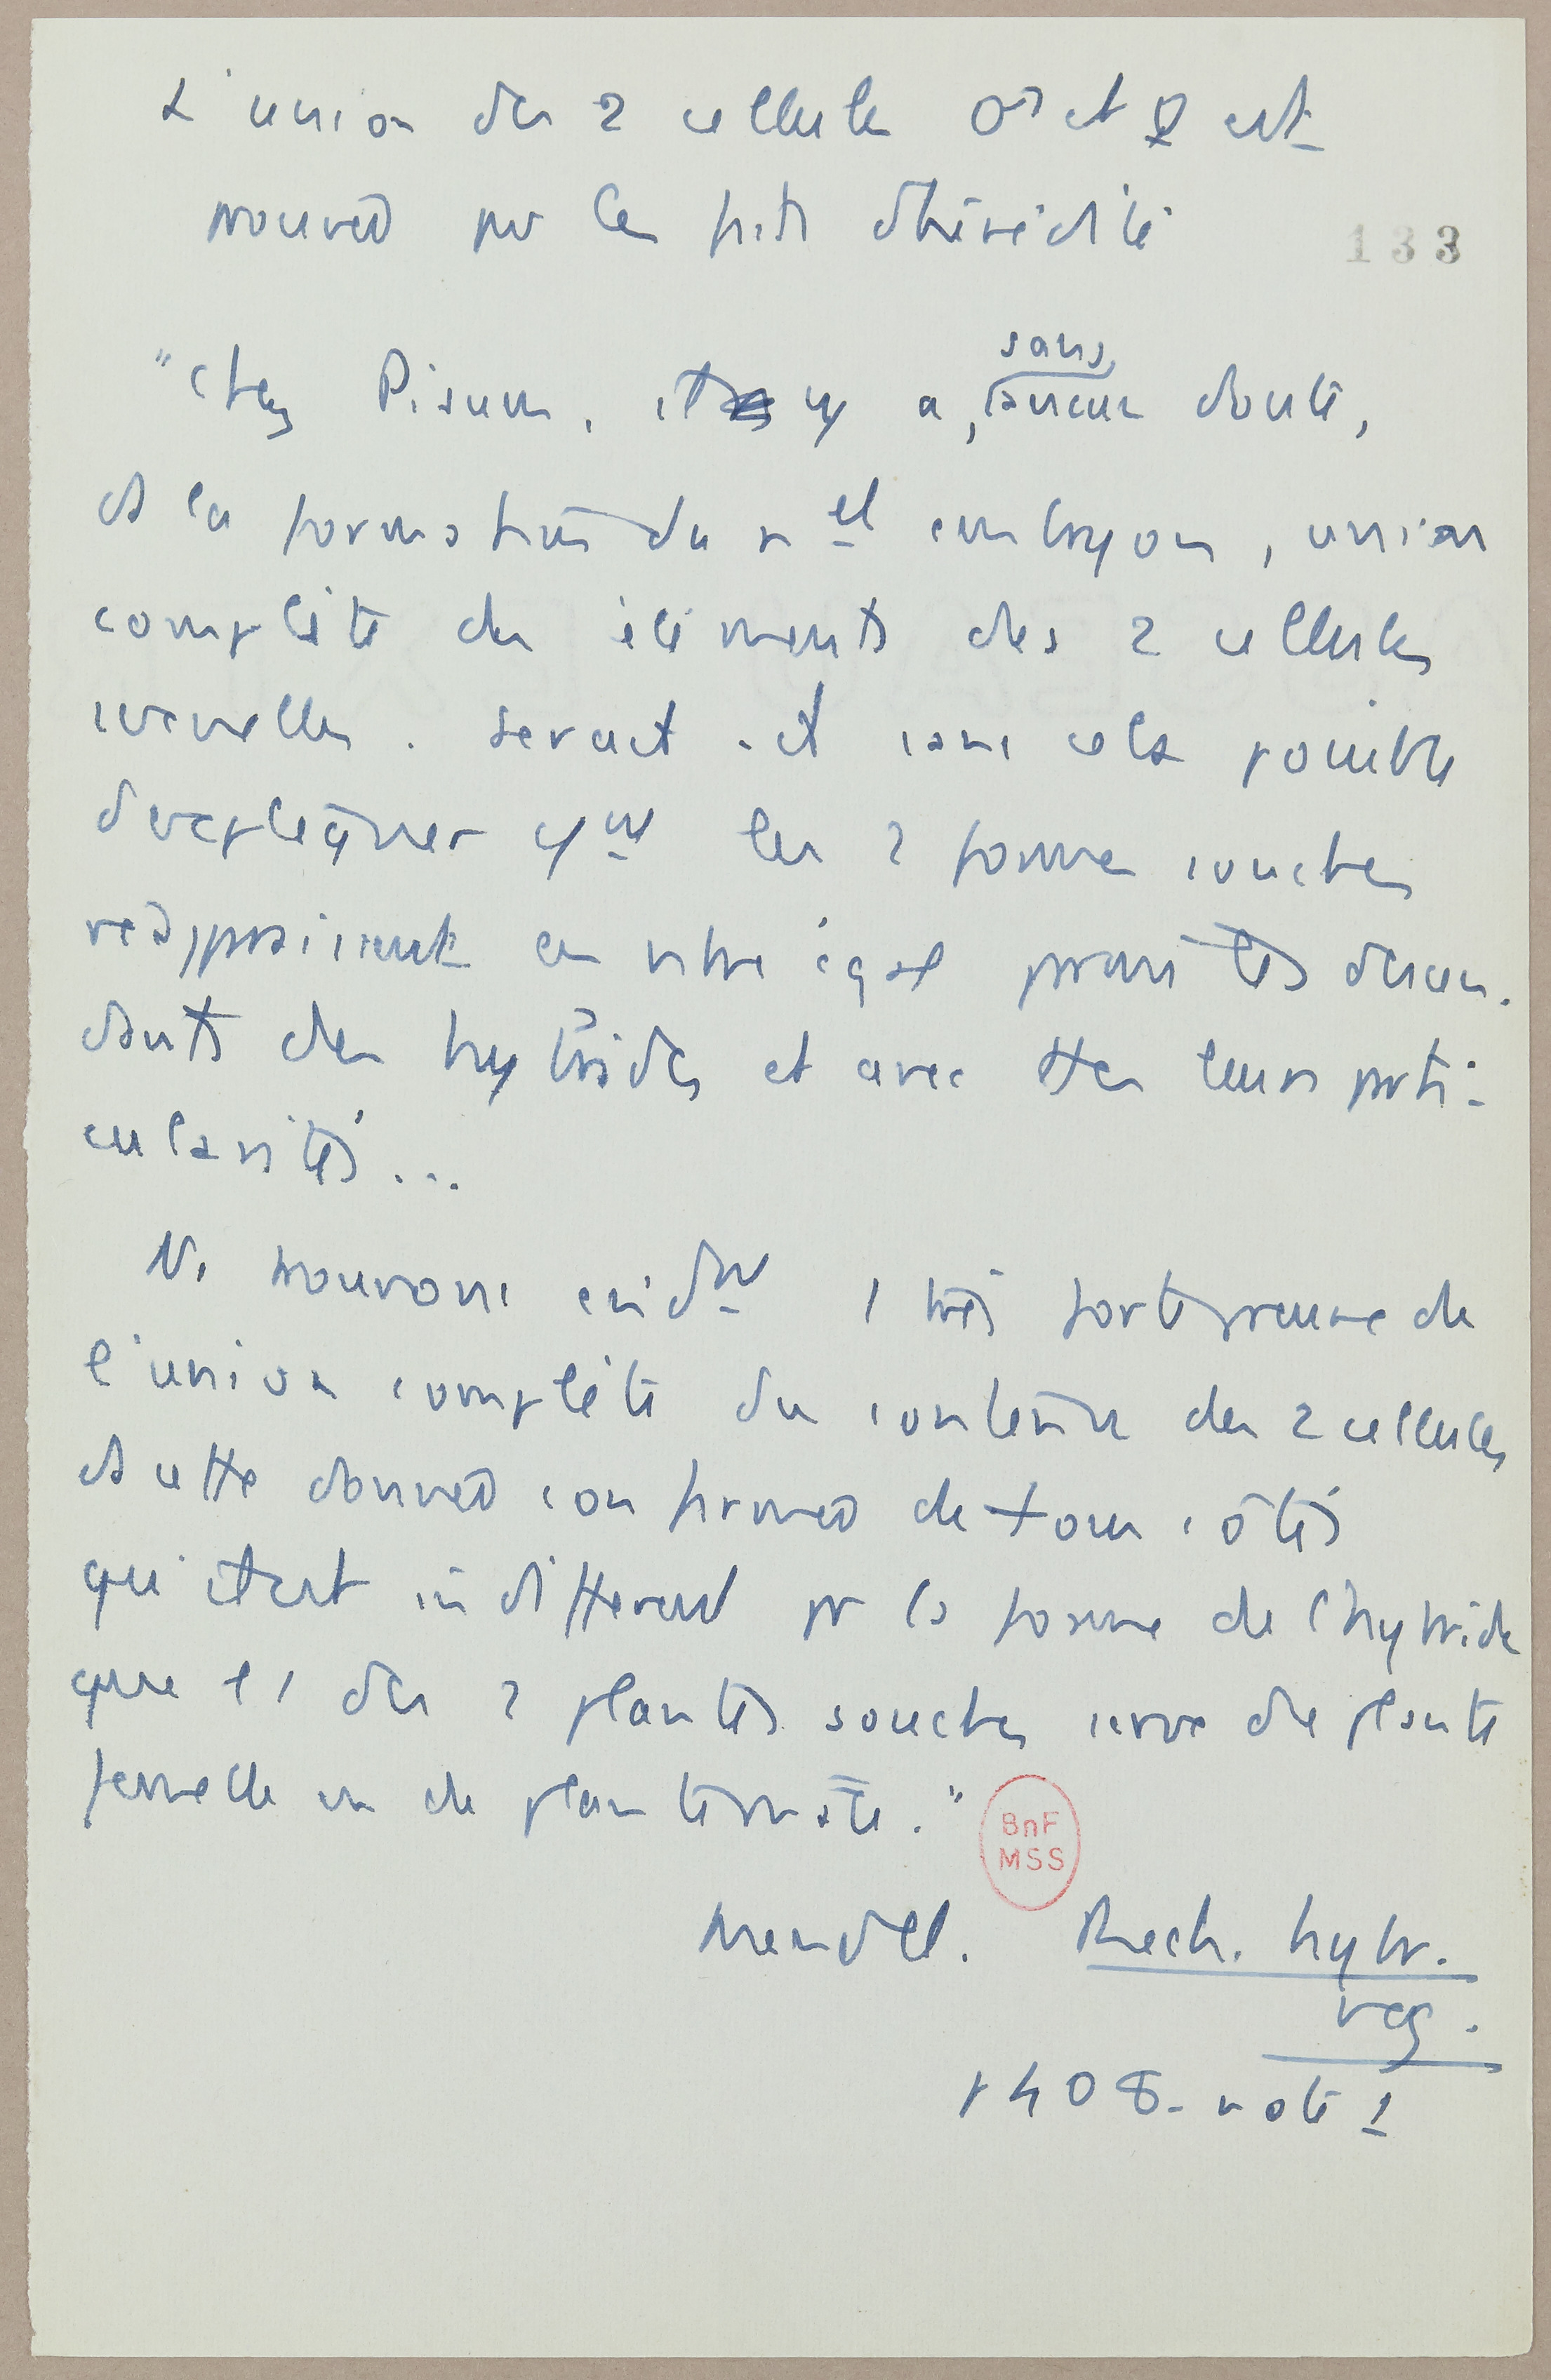 L'union des 2 cellules ♂ et ♀ est
prouvée par les faits d'hérédité
133
sans
"Chez Pisum, il y a, aucun doute,
ds la formation du nel embryon, union
complète des éléments des 2 cellules
sexuelles. Serait-il sans cela possible
d'expliquer que les 2 formes souches
réapparaissent en nbre égal parmi les descen-
dants des hybrides et avec ttes leurs parti-
cularités...
Ns trouvons enfin 1 très forte preuve de
l'union complète du contenu des 2 cellules
ds cette donnée confirmée de tous côtés
qu'il est indifférent pr la forme de l'hybride
que l'1 des 2 plantes souches serve de plante
femelle ou de plante mâle."
BnF
MSS
Mendel. Rech. hybr.
veg.
p 408. note 1